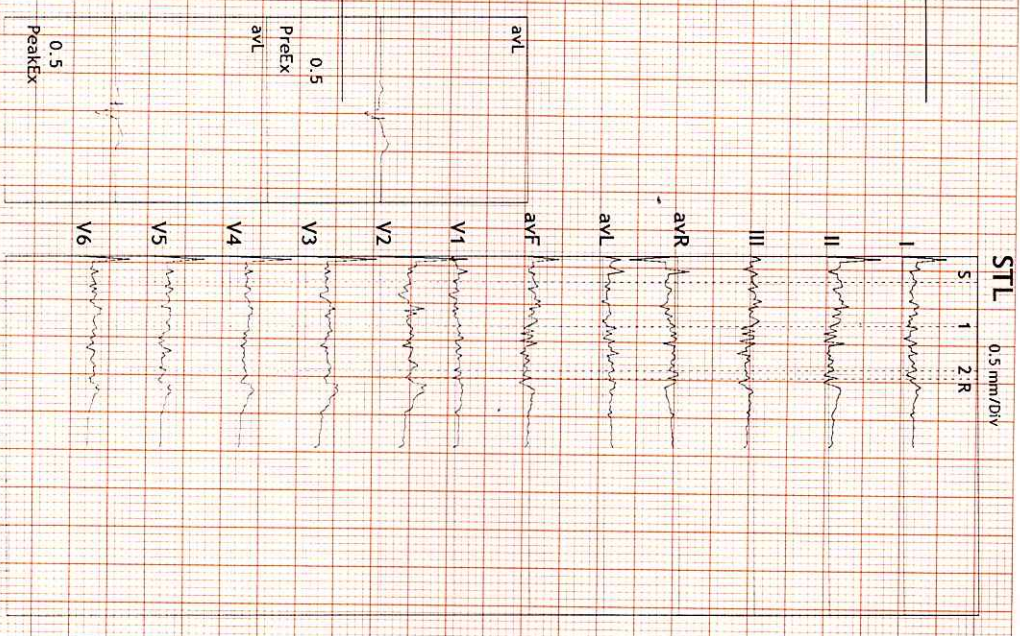 STL 0.5 mm/Div
S 1 2 R
I
II
III
avR
avL
avF
V1
V2
V3
V4
V5
V6
avL
0.5
PreEx
avL
0.5
PeakEx